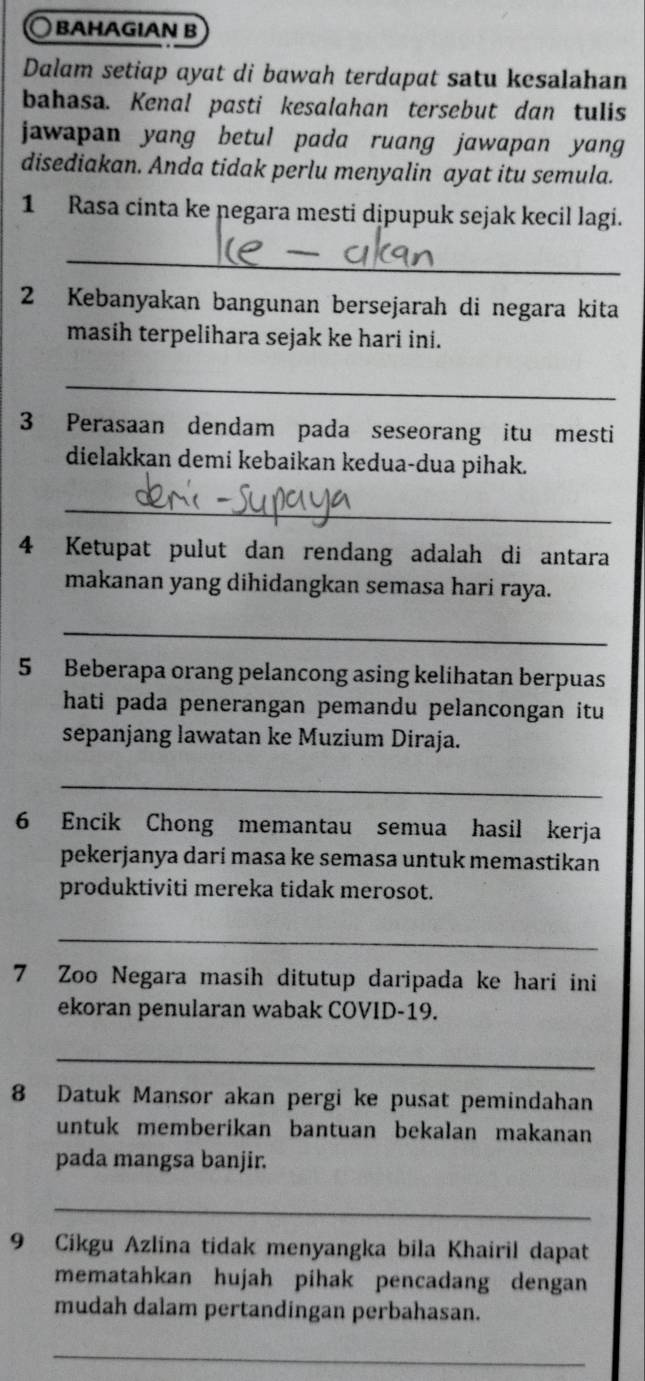 BAHAGIAN B
Dalam setiap ayat di bawah terdapat satu kesalahan
bahasa. Kenal pasti kesalahan tersebut dan tulis
jawapan yang betul pada ruang jawapan yang
disediakan. Anda tidak perlu menyalin ayat itu semula.
1 Rasa cinta ke negara mesti dipupuk sejak kecil lagi.
ke - akan
2 Kebanyakan bangunan bersejarah di negara kita
masih terpelihara sejak ke hari ini.
3 Perasaan dendam pada seseorang itu mesti
dielakkan demi kebaikan kedua-dua pihak.
demi - supaya
4 Ketupat pulut dan rendang adalah di antara
makanan yang dihidangkan semasa hari raya.
5 Beberapa orang pelancong asing kelihatan berpuas
hati pada penerangan pemandu pelancongan itu
sepanjang lawatan ke Muzium Diraja.
6 Encik Chong memantau semua hasil kerja
pekerjanya dari masa ke semasa untuk memastikan
produktiviti mereka tidak merosot.
7 Zoo Negara masih ditutup daripada ke hari ini
ekoran penularan wabak COVID-19.
8 Datuk Mansor akan pergi ke pusat pemindahan
untuk memberikan bantuan bekalan makanan
pada mangsa banjir.
9 Cikgu Azlina tidak menyangka bila Khairil dapat
mematahkan hujah pihak pencadang dengan
mudah dalam pertandingan perbahasan.